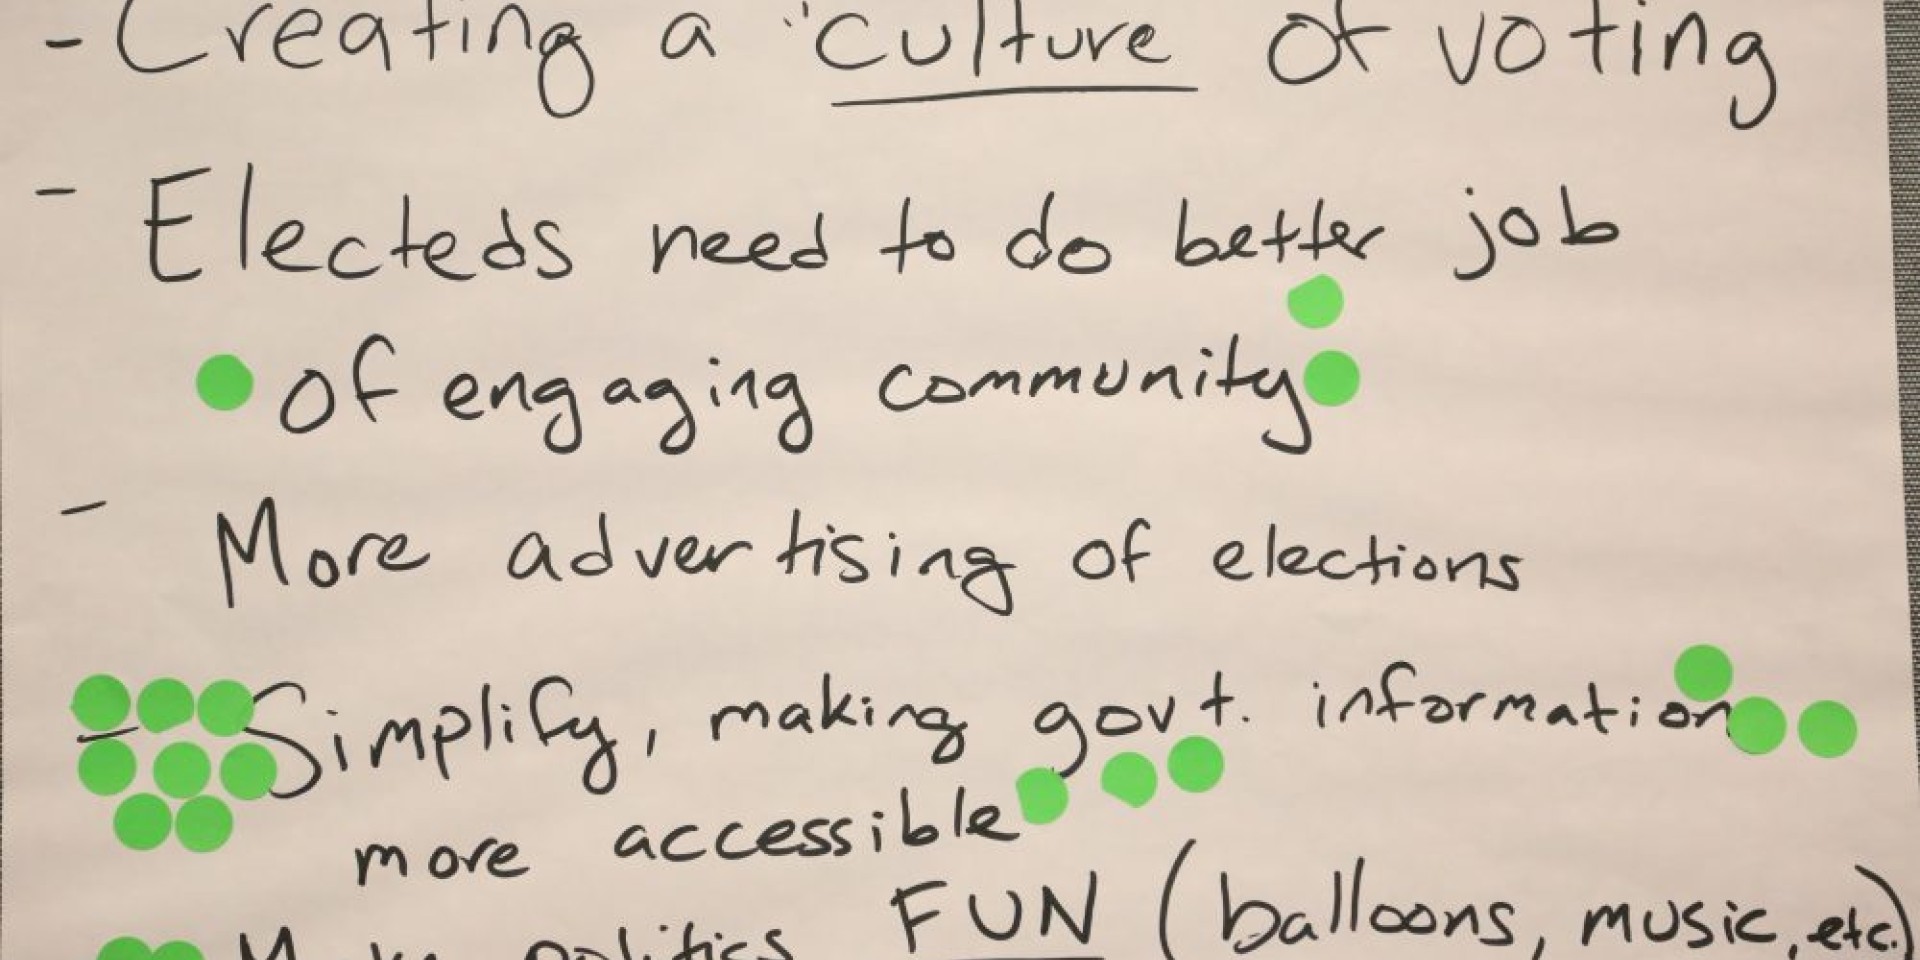 - Creating a "culture of voting
- Electeds need to do better job
of engaging community
- More advertising of elections
- Simplify, making govt. information
more accessible
Make politics FUN (balloons, music, etc.)